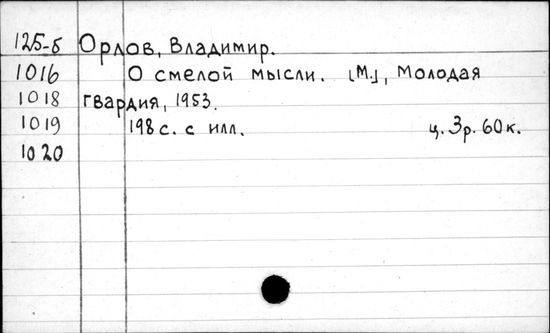 125-б Орлов, Владимир.
1016 О смелой мысли. [М.], Молодая
1018 гвардия, 1953.
1019 198 с. с илл. ц. 3р. 60к.
1020